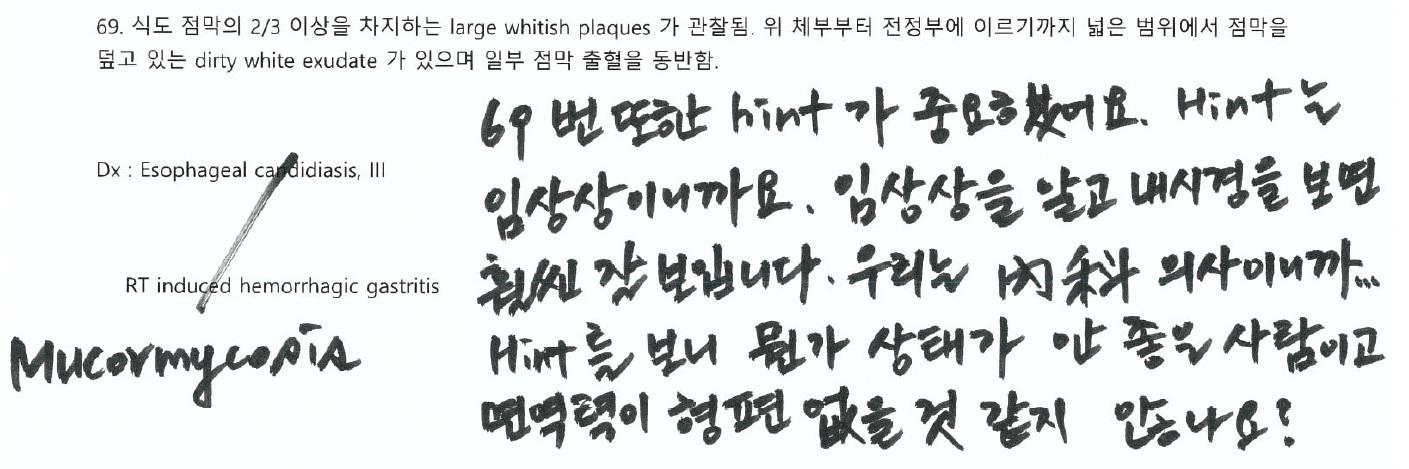 69. 식도 점막의 2/3 이상을 차지하는 large whitish plaques 가 관찰됨. 위 체부부터 전정부에 이르기까지 넓은 범위에서 점막을
덮고 있는 dirty white exudate 가 있으며 일부 점막 출혈을 동반함.
Dx : Esophageal candidiasis, III
RT induced hemorrhagic gastritis
Mucormycosis
69 번 또한 hint 가 중요했어요. Hint 는
임상상이니까요. 임상상을 알고 내시경을 보면
훨씬 잘 보입니다. 우리는 内科 의사이니까...
Hint 를 보니 뭔가 상태가 안 좋은 사람이고
면역력이 형편 없을 것 같지 않나요?